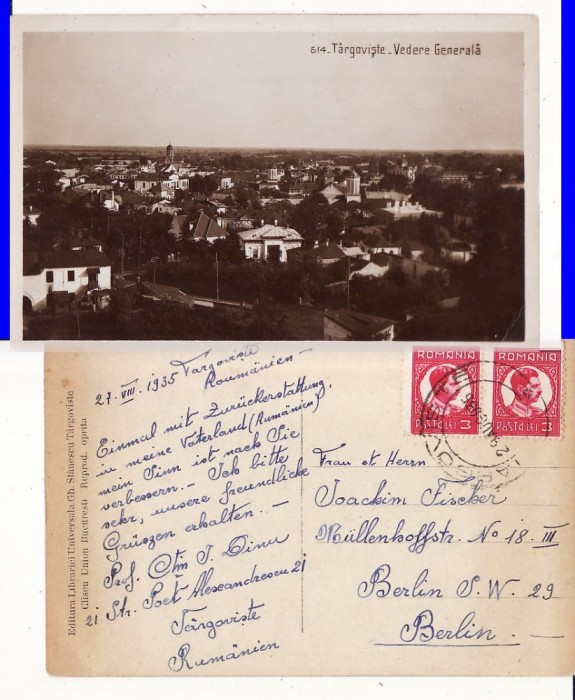 614-Târgoviște-Vedere Generală
Editura Librariei Universala Gh. Stănescu Târgoviste
Cliseu Union Bucuresti Reprod. oprita
27. VIII. 1935 Targoviste
Roumänien -
Einmal mit Zurückerstattung,
in meine Vaterland (Rumänien),
mein Sinn ist nach Sie
verbessern. - Ich bitte
sehr, unsere freundlicke
Grüszen erhalten. -
Prof. Ctin I. Dinu
21 Str. Poet Alexandrescu 21
Târgoviște
Rumänien
ROMANIA ROMANIA
POSTA LEI 3 POSTA LEI 3
Frau et Herrn
Joachim Fischer
Müllenhoffstr. No 18. III
Berlin S.W. 29
Berlin. -